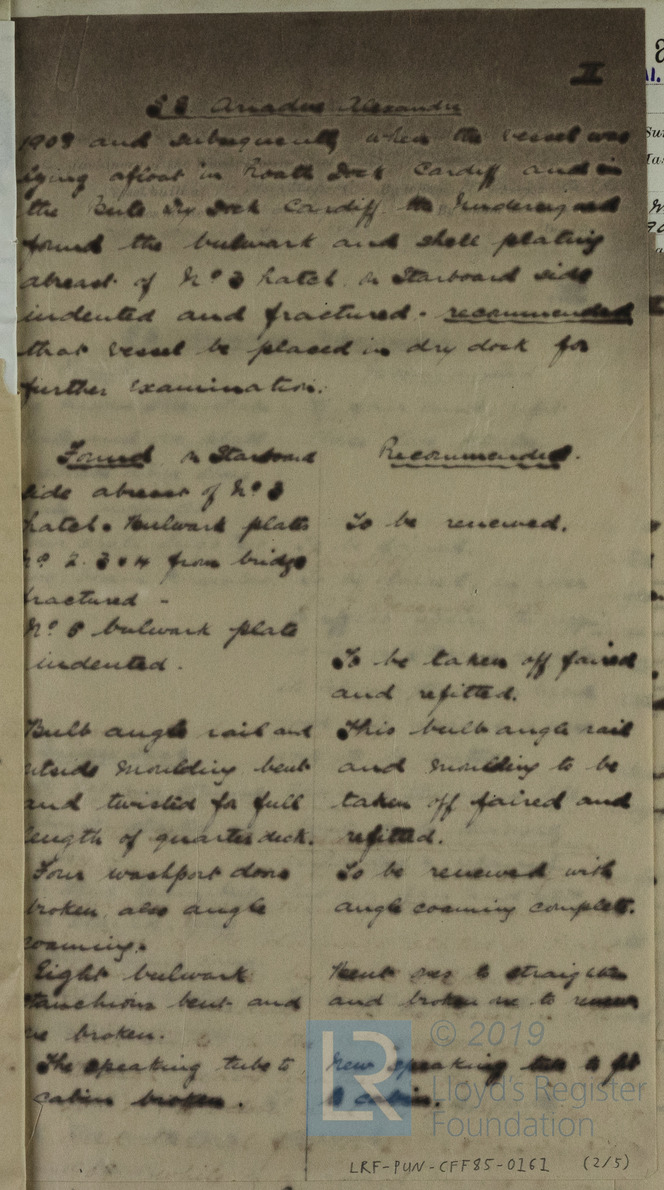 II
S S Ariadne Alexandra
1909 and subsequently when the vessel was
lying afloat in Roath Dock Cardiff and in
the Bute Dry Dock Cardiff the Undersigned
found the bulwark and shell plating
abreast of No 3 hatch on Starboard side
indented and fractured - recommended
that vessel be placed in dry dock for
further examination.
Found on Starboard
side abreast of No 3
hatch. Bulwark plates
No 2. 3 & 4 from bridge
fractured -
No 5 bulwark plate
indented.
Bulb angle rail and
outside moulding bent
and twisted for full
length of quarter deck.
Four washport doors
broken, also angle
coaming.
Eight bulwark
stanchions bent and
one broken.
The speaking tube to
cabin broken.
Recommended.
To be renewed.
To be taken off faired
and refitted.
This bulb angle rail
and moulding to be
taken off faired and
refitted.
To be renewed with
angle coaming complete.
Bent ones to straighten
and broken one to renew
New speaking tube to fit
to cabin.
LR
© 2019
Lloyd's Register
Foundation
LRF-PUN-CFF85-0161 (2/5)